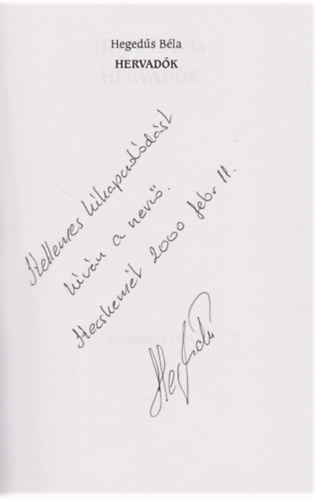 Hegedűs Béla
HERVADÓK
Kellemes kikapcsolódást
kíván a nevező.
Kecskemét 2000 febr 11.
Hegedűs